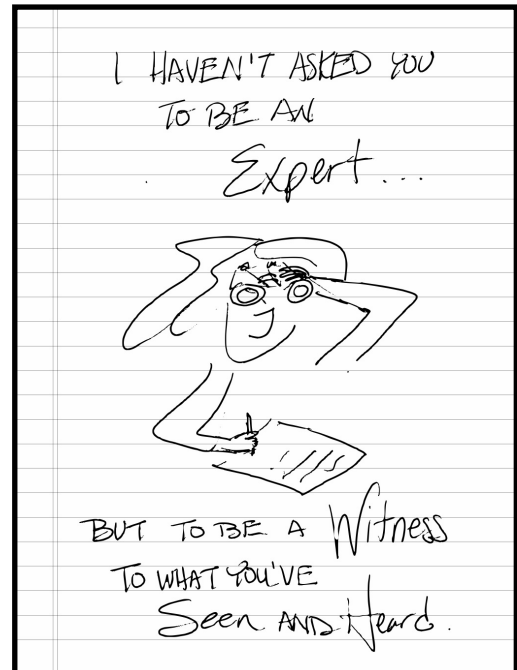 I HAVEN'T ASKED YOU
TO BE AN
Expert...
BUT TO BE A Witness
TO WHAT YOU'VE
Seen AND Heard.